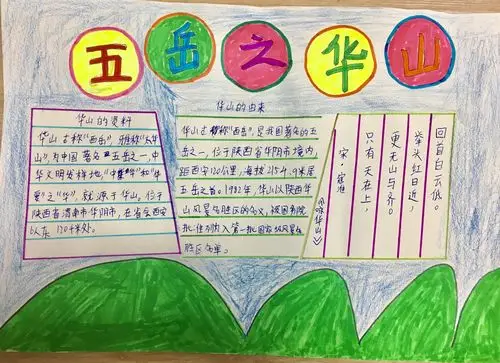 五岳之华山
华山的资料
华山古称“西岳”,雅称“太华
山”,为中国著名五岳之一,中
华文明发祥地,“中华”和“华
夏”之“华”,就源于华山,位于
陕西省渭南市华阴市,在省会西安
以东120千米处。
华山的由来
华山古称“西岳”,是我国著名的五
岳之一,位于陕西省华阴市境内,
距西安120公里,海拔2154.9米居
五岳之首。1982年,华山以陕西华
山风景名胜区的名义,被国务院
批准列入第一批国家级风景名
胜区名单。
《咏华山》
宋·寇准
只有天在上,
更无山与齐。
举头红日近,
回首白云低。